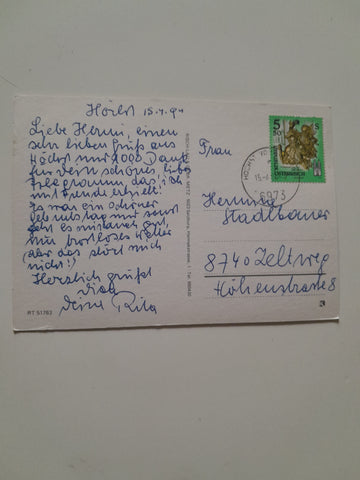 Höchst 15.4.94
Liebe Hermi, einen
sehr lieben Gruß aus
Höchst mit 1000 Dank
für dein schönes, liebes
Telegramm, das ich
mit Freude erhielt.
Es war ein schöner
Geburtstag mir sonst
geht es mir auch gut
nur trostloses Wetter
(aber das stört mich
nicht!)
Herzlich grüßt
Dich
Deine Rita
RT 51763
5
50
S
ÖSTERREICH
6973
Frau
Hermine
Stadlbauer
8740 Zeltweg
Höhenstrasse 8